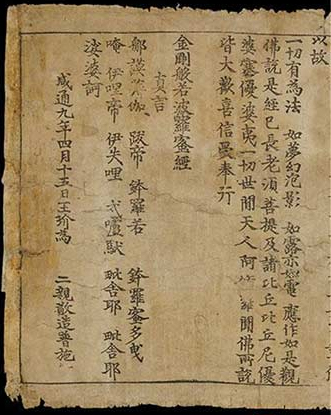 以故
一切有為法 如夢幻泡影 如露亦如電 應作如是觀
佛說是經已長老湏菩提及諸比丘比丘尼優
婆塞優婆夷一切世間天人阿羅聞佛所說
皆大歡喜信受奉行
金剛般若波羅蜜經
真言
伽 跋帝 鉢羅若 鉢羅蜜多曳
唵 伊哩帝 伊失哩 戍馱 毗舍耶 毗舍耶
婆訶
咸通九年四月十五日王玠為 二親敬造普施